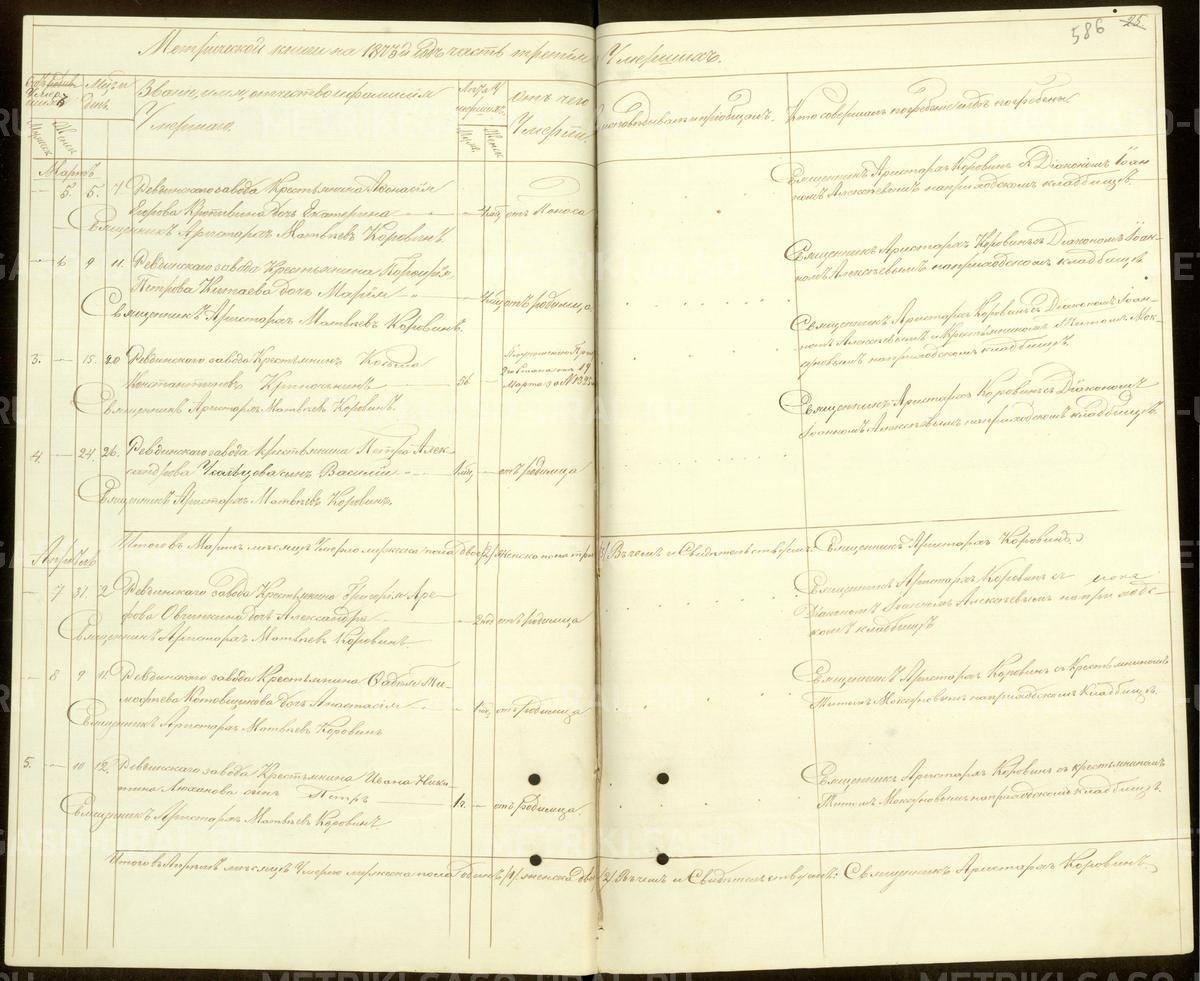 586 25.
Метрической книги на 1873й годъ часть третія Умершихъ.
Мѣсяцъ и день.
Званіе, имя, отчество и фамилія
Умершаго.
Лѣта умершаго.
Отъ чего
Умеръ.
Кто исповѣдывалъ и пріобщалъ.
Кто совершалъ погребеніе и гдѣ погребены
Мартъ
— 5. 5. 7. Ревдинскаго завода Крестьянина Аѳанасія
Егорова дочь Екатерина — отъ Поноса
Священникъ Аристархъ Коровинъ съ Діакономъ Іоан-
номъ Алексѣевымъ на приходскомъ кладбищѣ.
Священникъ Аристархъ Матвѣевъ Коровинъ.
— 6 9 11. Ревдинскаго завода Крестьянина Порфирія
Петрова Китаева дочь Марія — отъ родимца.
Священникъ Аристархъ Коровинъ съ Діакономъ Іоан-
номъ Алексѣевымъ на приходскомъ кладбищѣ
Священникъ Аристархъ Матвѣевъ Коровинъ.
3. — 15. 20 Ревдинскаго завода Крестьянинъ Козьма
Константиновъ 56 — Марта за №
Священникъ Аристархъ Коровинъ съ Діакономъ Іоан-
номъ Алексѣевымъ и Крестьяниномъ Титомъ Мок-
руновымъ на приходскомъ кладбищѣ.
Священникъ Аристархъ Матвѣевъ Коровинъ.
4. — 24. 26. Ревдинскаго завода Крестьянина Петра Алек-
сандрова сынъ Василій — отъ родимца
Священникъ Аристархъ Коровинъ съ Діакономъ
Іоанномъ Алексѣевымъ на приходскомъ кладбищѣ.
Священникъ Аристархъ Матвѣевъ Коровинъ.
Итого въ Мартѣ мѣсяцѣ Умерло мужеска пола двое /2/ женска пола Въ чемъ и Свидѣтельствуемъ: Священникъ Аристархъ Коровинъ
Апрѣль
— 7 31. 2 Ревдинскаго завода Крестьянина Григорія Аре-
фова Овчинкина дочь Александра — отъ родимца
Священникъ Аристархъ Коровинъ съ
Діакономъ Іоанномъ Алексѣевымъ на приход-
скомъ кладбищѣ
Священникъ Аристархъ Матвѣевъ Коровинъ.
— 8 9 11. Ревдинскаго завода Крестьянина Ти-
моѳеева Котовщикова дочь Анастасія — отъ Родимца
Священникъ Аристархъ Коровинъ съ Крестьяниномъ
Титомъ Мокруновымъ на приходскомъ Кладбищѣ.
Священникъ Аристархъ Матвѣевъ Коровинъ
5. — 10 12. Ревдинскаго завода Крестьянина Ивана Ники-
тина сынъ Петръ — отъ родимца.
Священникъ Аристархъ Коровинъ съ крестьяниномъ
Титомъ Мокруновымъ на приходскомъ кладбищѣ.
Священникъ Аристархъ Матвѣевъ Коровинъ
Итого въ Апрѣлѣ мѣсяцѣ Умерло мужеска пола одинъ /1/ женска двѣ /2/ Въ чемъ и Свидѣтельствуемъ: Священникъ Аристархъ Коровинъ
METRIKI.GASO-URAL.RU